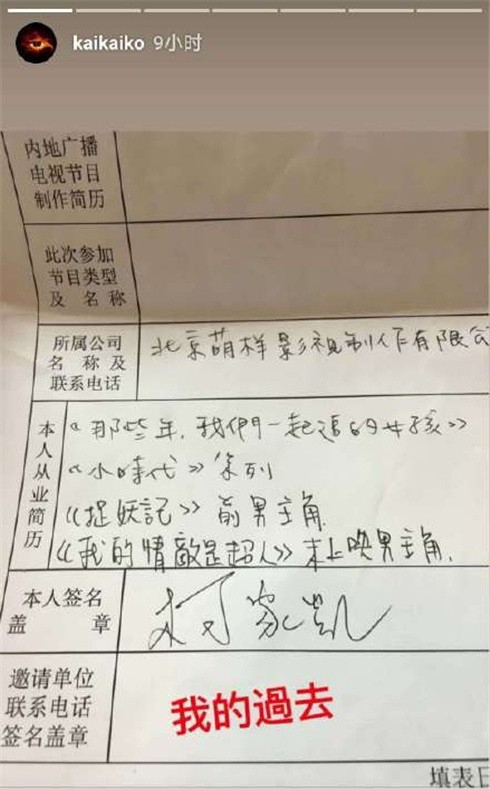 kaikaiko 9小时
内地广播
电视节目
制作简历
此次参加
节目类型
及名称
所属公司
名称及
联系电话
北京萌样影视制作有限公
本人从业简历
《那些年,我們一起追的女孩》
《小時代》系列
《捉妖記》前男主角
《我的情敵是超人》未上映男主角.
本人签名
盖章
柯家凯
邀请单位
联系电话
签名盖章
我的過去
填表日